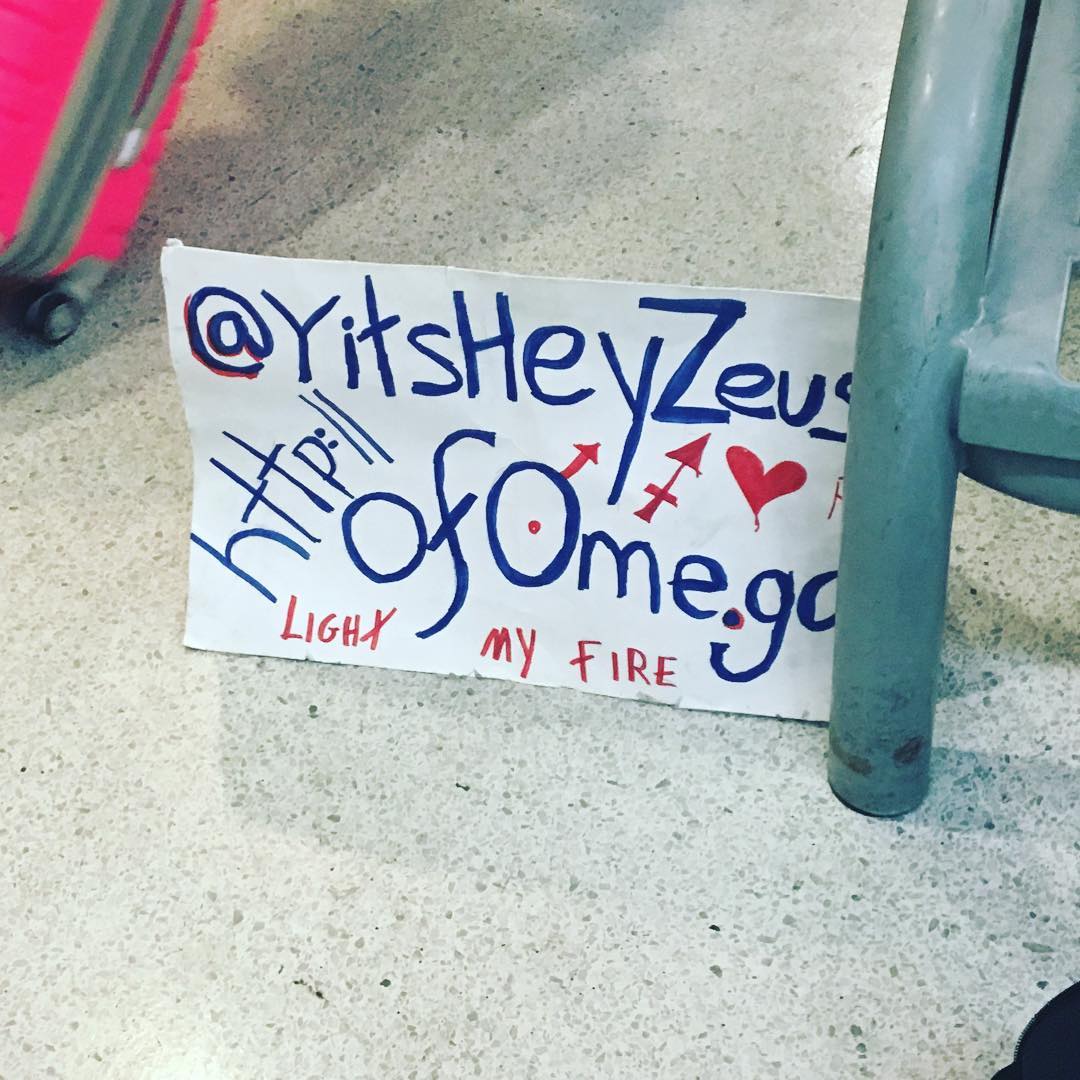 @YitsHeyZeus
http://
ofOme.go
LIGHT MY FIRE